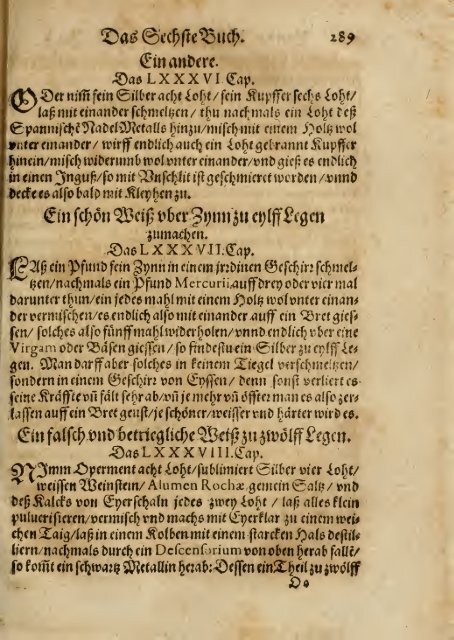 Das Sechste Buch. 289
Ein andere.
Das LXXXVI Cap.
ODer nim̃ fein Silber acht Loht/ fein Kupffer sechs Loht/
laß mit einander schmeltzen/ thu nachmals ein Loht deß
Spannischẽ Nadel Metalls hinzu/ misch mit einem Holtz wol
vnter einander/ wirff endlich auch ein Loht gebrannt Kupffer
hinein/ misch widerumb wol vnter einander/ vnd gieß es endlich
in einen Inguß/ so mit Vnschlit ist geschmieret worden/ vnnd
decke es also bald mit Kleyhen zu.
Ein schön Weiß vber Zynn zu eylff Legen
zumachen.
Das LXXXVII. Cap.
LAß ein Pfund fein Zynn in einem jrrdinen Geschirꝛ schmel-
tzen/ nachmals ein Pfund Mercurii, auff drey oder vier mal
darunter thun/ ein jedes mahl mit einem Holtz wol vnter einan-
der vermischen/ es endlich also mit einander auff ein Bret gies-
sen/ solches also fünff mahl widerholen/ vnnd endlich vber eine
Virgam oder Bäsen giessen/ so findestu ein Silber zu eylff Le-
gen. Man darff aber solches in keinem Tiegel verschmeltzen/
sondern in einem Geschirꝛ von Eyssen/ denn sonst verliert es
seine Kräffte vñ fält sehr ab/ vñ je mehr vñ öffter man es also zer-
lassen auff ein Bret geust/ je schöner/ weisser vnd härter wird es.
Ein falsch vnd betriegliche Weiß zu zwölff Legen.
Das LXXXVIII. Cap.
NImm Operment acht Loht/ sublimiert Silber vier Loht/
weissen Weinstein/ Alumen Rochæ, gemein Saltz/ vnd
deß Kalcks von Eyerschaln jedes zwey Loht/ laß alles klein
puluerisieren/ vermisch vnd machs mit Eyerklar zu einem wei-
chen Taig/ laß in einem Kolben mit einem starcken Hals destil-
liern/ nachmals durch ein Descensorium von oben herab fallẽ/
so kom̃t ein schwartz Metall in herab: Dessen ein Theil zu zwölff
Do